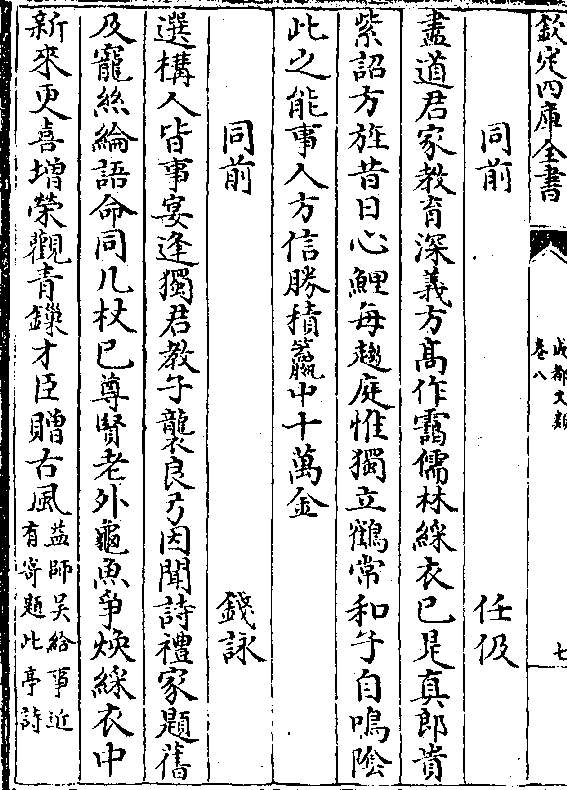 欽定四庫全書
成都文類
卷八
七
同前 任伋
盡道君家教育深義方髙作靄儒林綵衣已是真郎貴
紫詔方旌昔日心鯉每趨庭惟獨立鶴常和子自鳴隂
此之能事人方信勝積籯中十萬金
同前 錢詠
選構人皆事宴逢獨君教子襲良弓因聞詩禮家題舊
及寵絲綸語命同几杖已尊賢老外龜魚爭煥綵衣中
新來更喜增榮觀青鏁才臣贈古風益師吳給事近
有寄題此亭詩